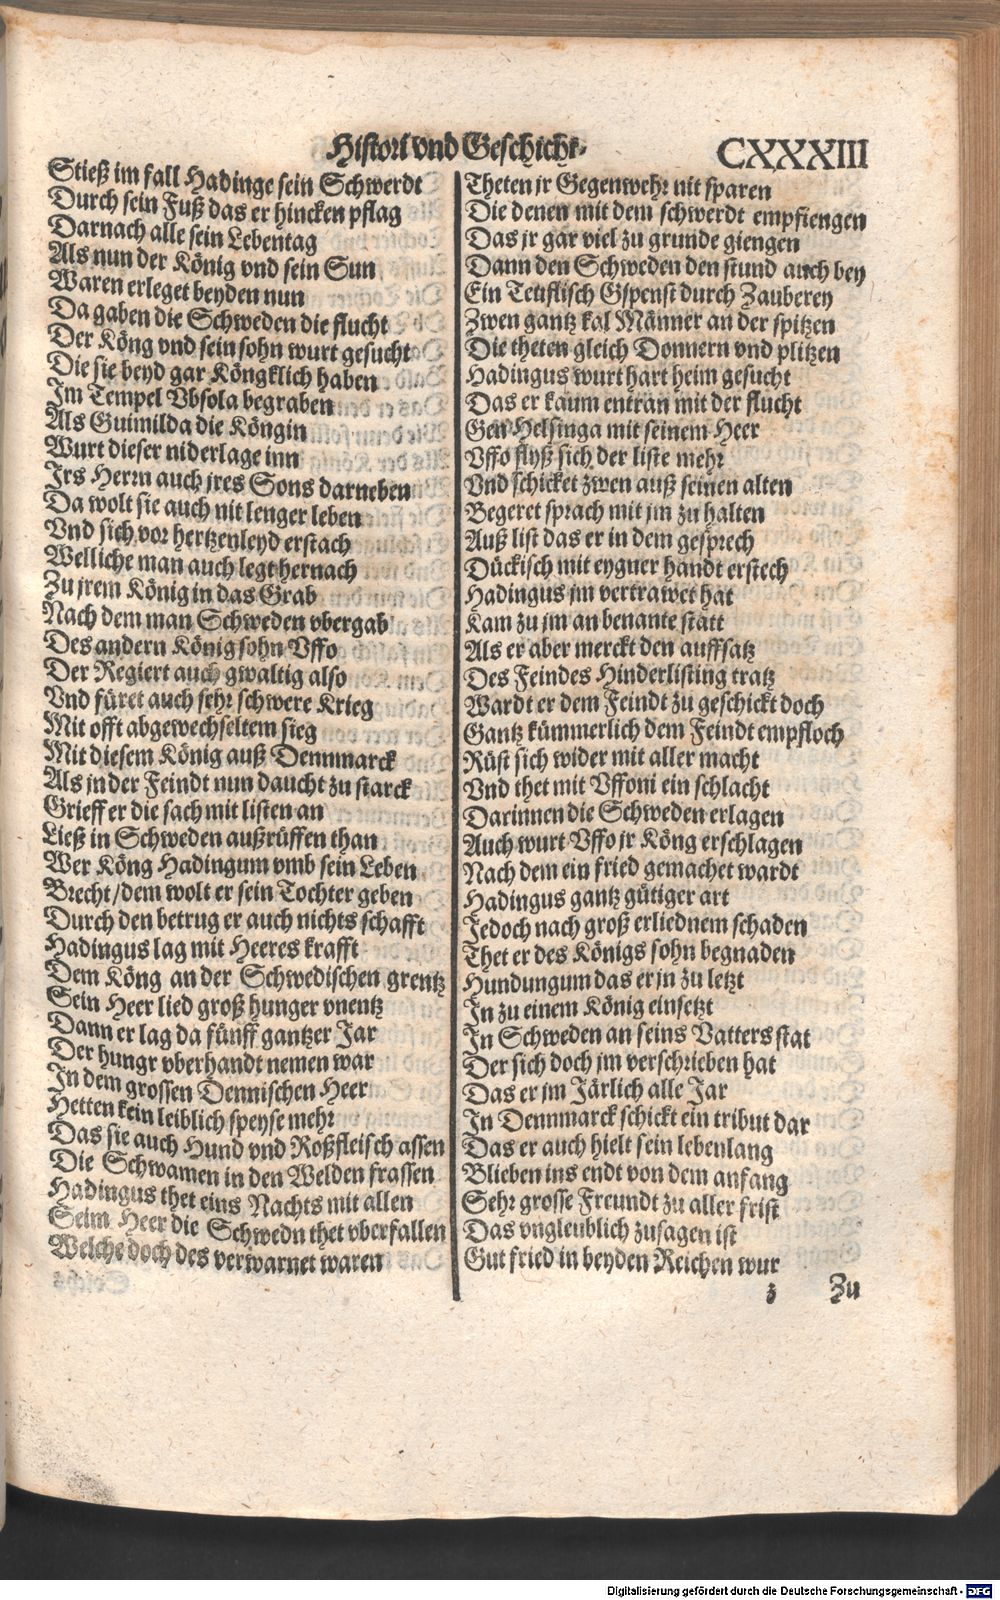 Histori vnd Geschicht-
CXXXIII
Stieß im fall Hadinge sein Schwerdt
Durch sein Fuß das er hincken pflag
Darnach alle sein Lebentag
Als nun der König vnd sein Sun
Waren erleget beyden nun
Da gaben die Schweden die flucht
Der Köng vnd sein sohn wurt gesucht
Die sie beyd gar Köngklich haben
Im Tempel Vbsola begraben
Als Guimilda die Köngin
Wurt dieser niderlage inn
Irs Herrn auch jres Sons darneben
Da wolt sie auch nit lenger leben
Vnd sich vor hertzenleyd erstach
Welliche man auch legt hernach
Zu jrem König in das Grab
Nach dem man Schweden vbergab
Des andern König sohn Vffo
Der Regiert auch gwaltig also
Vnd füret auch sehr schwere Krieg
Mit offt abgewechseltem sieg
Mit diesem König auß Dennmarck
Als jn der Feindt nun daucht zu starck
Grieff er die sach mit listen an
Ließ in Schweden außrüffen than
Wer Köng Hadingum vmb sein Leben
Brecht/dem wolt er sein Tochter geben
Durch den betrug er auch nichts schafft
Hadingus lag mit Heeres krafft
Dem Köng an der Schwedischen grentz
Sein Heer lied groß hunger vnentz
Dann er lag da fünff gantzer Jar
Der hungr vberhandt nemen war
In dem grossen Dennischen Heer
Hetten kein leiblich speyse mehr
Das sie auch Hund vnd Roßfleisch assen
Die Schwamen in den Welden frassen
Hadingus thet eins Nachts mit allen
Seim Heer die Schwedn thet vberfallen
Welche doch des verwarnet waren
Theten jr Gegenwehr nit sparen
Die denen mit dem schwerdt empfiengen
Das jr gar viel zu grunde giengen
Dann den Schweden den stund auch bey
Ein Teuflisch Gspenst durch Zauberey
Zwen gantz kal Männer an der spitzen
Die theten gleich Donnern vnd plitzen
Hadingus wurt hart heim gesucht
Das er kaum entran mit der flucht
Gen Helsinga mit seinem Heer
Vffo flyß sich der liste mehr
Vnd schicket zwen auß seinen alten
Begeret sprach mit jm zu halten
Auß list das er in dem gesprech
Dückisch mit eygner handt erstech
Hadingus jm vertrawet hat
Kam zu jm an benante statt
Als er aber merckt den auffsatz
Des Feindes Hinderlisting tratz
Wardt er dem Feindt zu geschickt doch
Gantz kümmerlich dem Feindt empfloch
Rüst sich wider mit aller macht
Vnd thet mit Vffoni ein schlacht
Darinnen die Schweden erlagen
Auch wurt Vffo jr Köng erschlagen
Nach dem ein fried gemachet wardt
Hadingus gantz gütiger art
Jedoch nach groß erliednem schaden
Thet er des Königs sohn begnaden
Hundungum das er jn zu letzt
In zu einem König einsetzt
In Schweden an seins Vatters stat
Der sich doch jm verschrieben hat
Das er jm Järlich alle Jar
In Dennmarck schickt ein tribut dar
Das er auch hielt sein lebenlang
Blieben ins endt von dem anfang
Sehr grosse Freundt zu aller frist
Das vngleublich zusagen ist
Gut fried in beyden Reichen wur
z
Zu
Digitalisierung gefördert durch die Deutsche Forschungsgemeinschaft - DFG